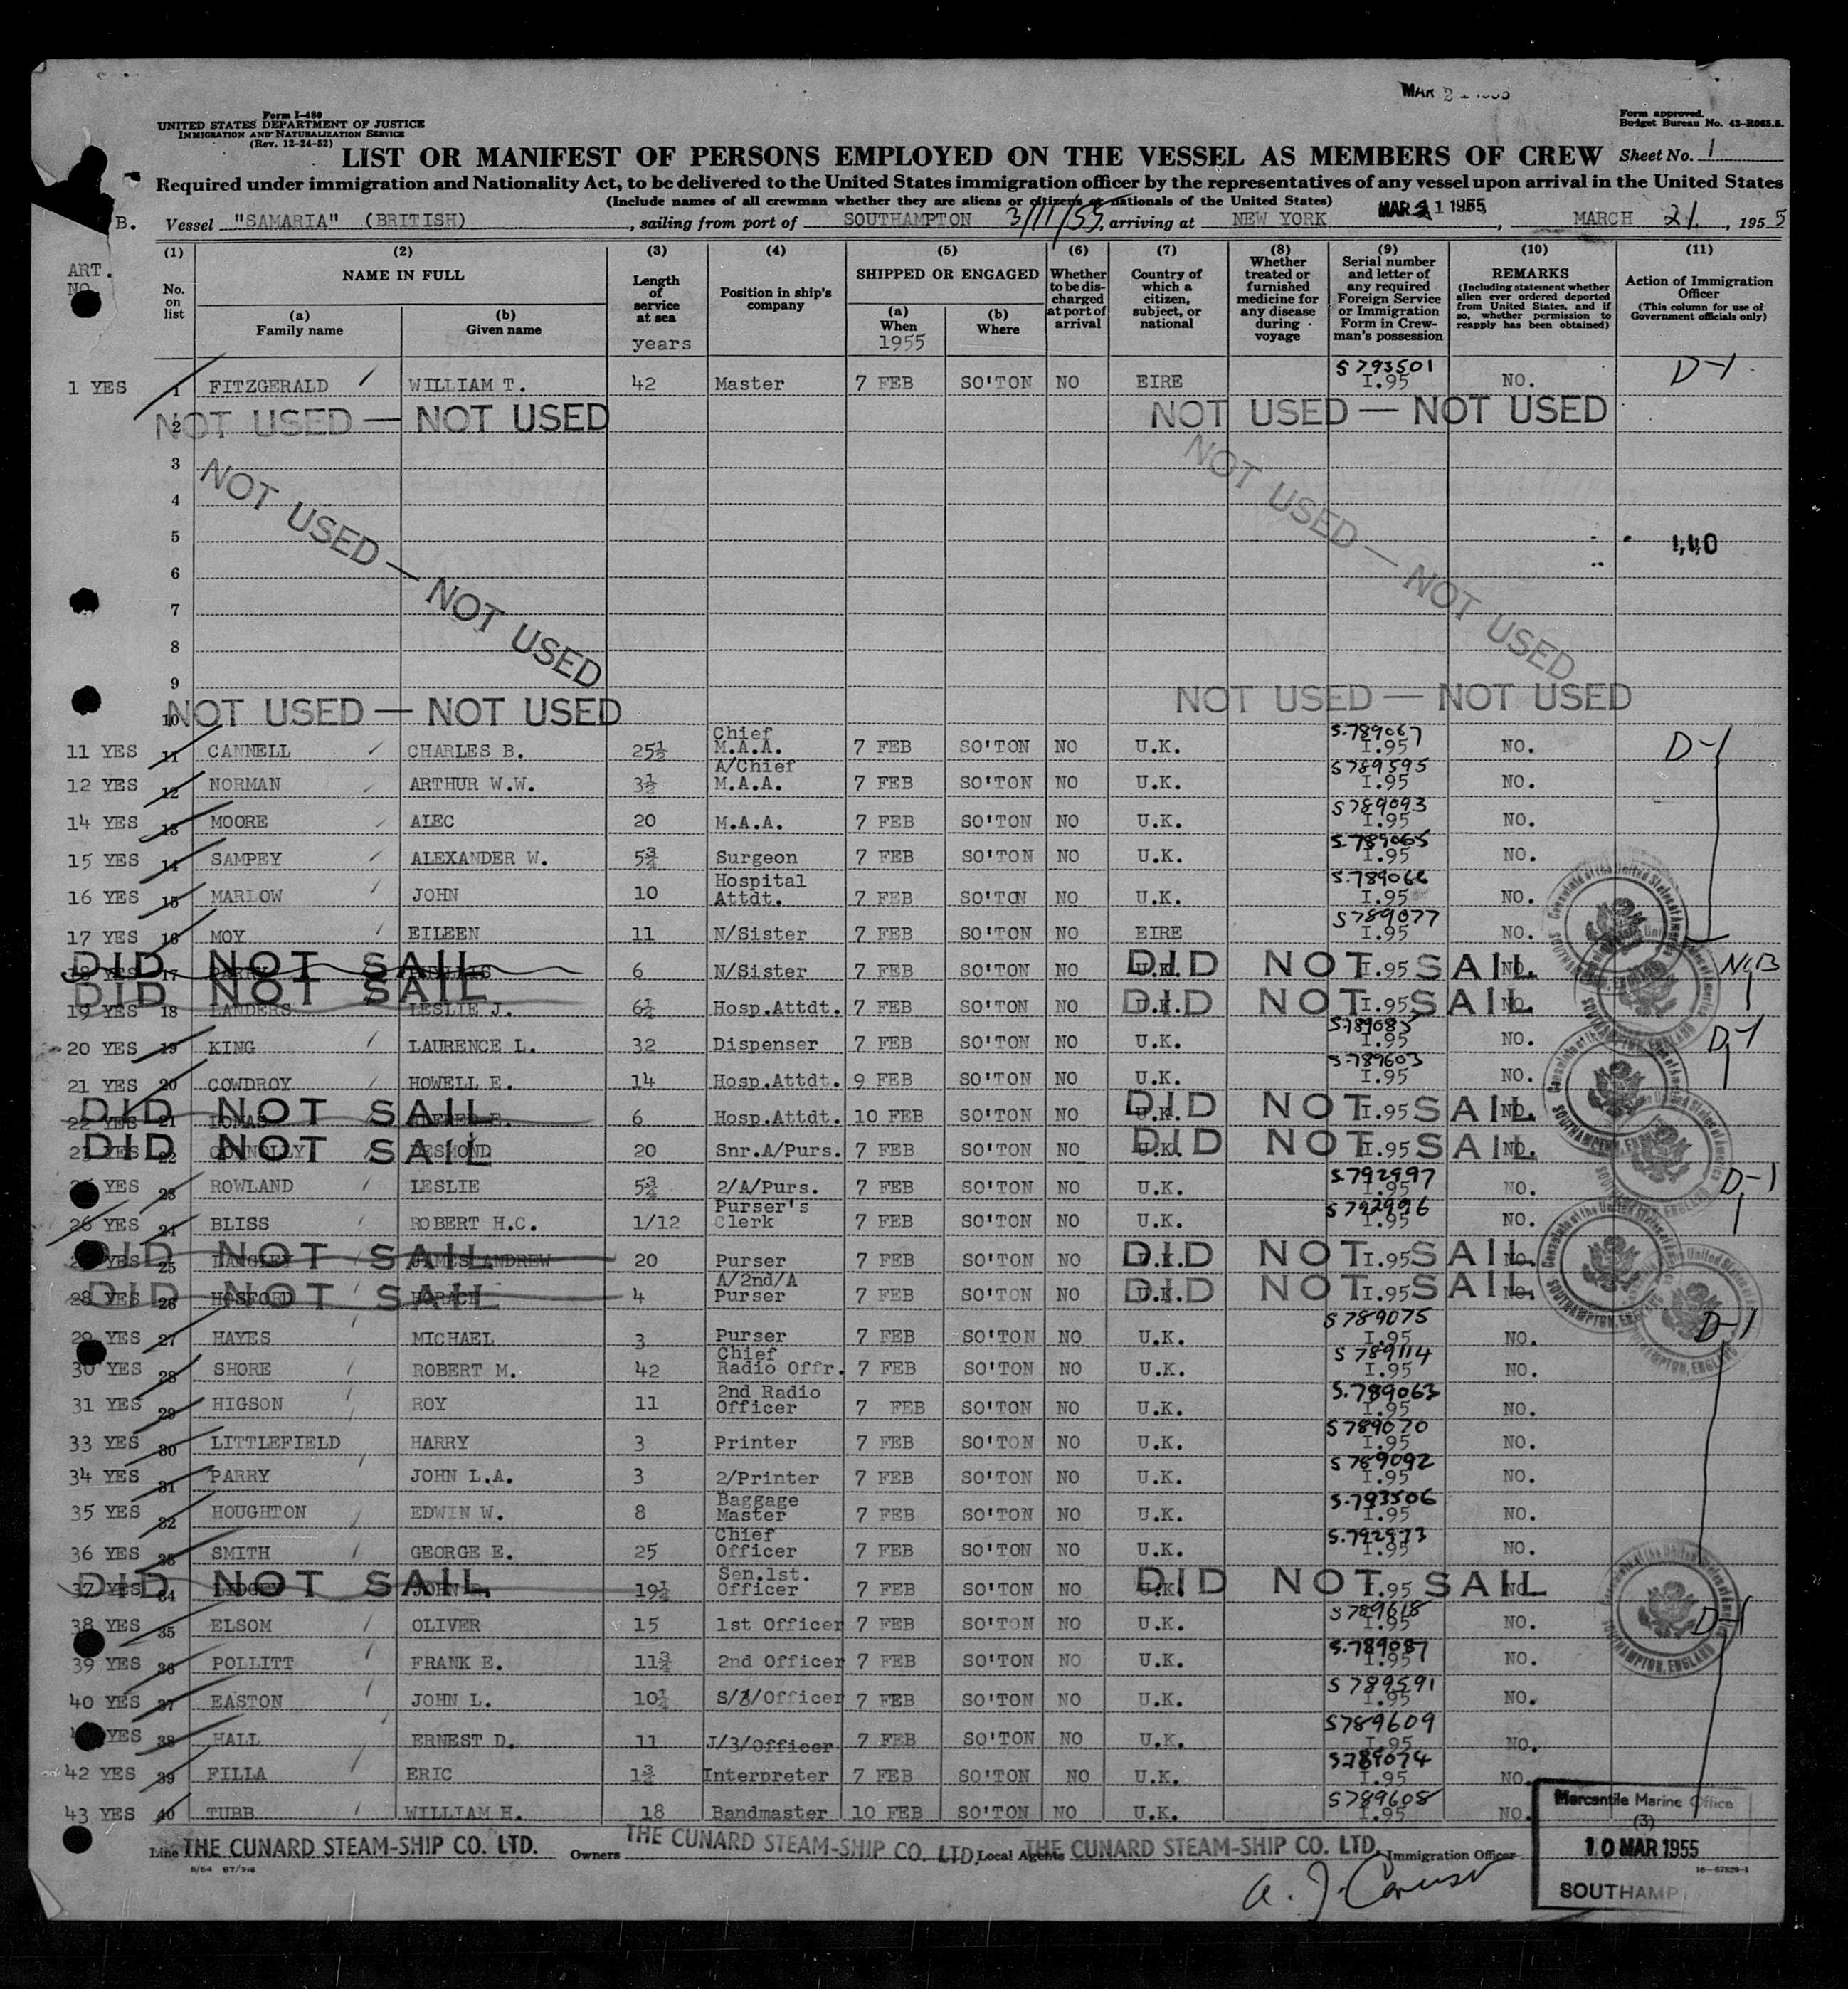 MAR 21 1955
Form I-480
UNITED STATES DEPARTMENT OF JUSTICE
IMMIGRATION AND NATURALIZATION SERVICE
(Rev. 12-24-52)
Form approved.
Budget Bureau No. 43-R065.5.
LIST OR MANIFEST OF PERSONS EMPLOYED ON THE VESSEL AS MEMBERS OF CREW Sheet No. 1
Required under immigration and Nationality Act, to be delivered to the United States immigration officer by the representatives of any vessel upon arrival in the United States
(Include names of all crewman whether they are aliens or citizens or nationals of the United States)
B. Vessel "SAMARIA" (BRITISH), sailing from port of SOUTHAMPTON 3/11/55, arriving at NEW YORK MAR 21 1955, MARCH 21, 1955
ART. NO.
(1) No. on list
(2) NAME IN FULL (a) Family name (b) Given name
(3) Length of service at sea years
(4) Position in ship's company
(5) SHIPPED OR ENGAGED (a) When 1955 (b) Where
(6) Whether to be discharged at port of arrival
(7) Country of which a citizen, subject, or national
(8) Whether treated or furnished medicine for any disease during voyage
(9) Serial number and letter of any required Foreign Service or Immigration Form in Crewman's possession
(10) REMARKS (Including statement whether alien ever ordered deported from United States, and if so, whether permission to reapply has been obtained)
(11) Action of Immigration Officer (This column for use of Government officials only)
1 YES 1 FITZGERALD WILLIAM T. 42 Master 7 FEB SO'TON NO EIRE S793501 I.95 NO. D-1
NOT USED — NOT USED NOT USED — NOT USED
2
3
4
NOT USED — NOT USED NOT USED — NOT USED
5 1,40
6
7
8
9
NOT USED — NOT USED NOT USED — NOT USED
10
11 YES 11 CANNELL CHARLES B. 25½ Chief M.A.A. 7 FEB SO'TON NO U.K. S.789067 I.95 NO. D-1
12 YES 12 NORMAN ARTHUR W.W. 3½ A/Chief M.A.A. 7 FEB SO'TON NO U.K. S789595 I.95 NO.
14 YES 13 MOORE ALEC 20 M.A.A. 7 FEB SO'TON NO U.K. S789093 I.95 NO.
15 YES 14 SAMPEY ALEXANDER W. 5¾ Surgeon 7 FEB SO'TON NO U.K. S.789065 I.95 NO.
16 YES 15 MARLOW JOHN 10 Hospital Attdt. 7 FEB SO'TON NO U.K. S.789066 I.95 NO.
17 YES 16 MOY EILEEN 11 N/Sister 7 FEB SO'TON NO EIRE S789077 I.95 NO.
DID NOT SAIL YES 17 6 N/Sister 7 FEB SO'TON NO U.K. I.95 NO. DID NOT SAIL
DID NOT SAIL 19 YES 18 LANDERS LESLIE J. 6½ Hosp.Attdt. 7 FEB SO'TON NO U.K. I.95 NO. DID NOT SAIL
20 YES 19 KING LAURENCE L. 32 Dispenser 7 FEB SO'TON NO U.K. S.789085 I.95 NO. D-1
21 YES 20 COWDROY HOWELL E. 14 Hosp.Attdt. 9 FEB SO'TON NO U.K. S.789603 I.95 NO.
DID NOT SAIL 22 YES 21 LOMAS 6 Hosp.Attdt. 10 FEB SO'TON NO U.K. I.95 NO. DID NOT SAIL
DID NOT SAIL 23 YES 22 CONNOLLY DESMOND 20 Snr.A/Purs. 7 FEB SO'TON NO U.K. I.95 NO. DID NOT SAIL
YES 23 ROWLAND LESLIE 5¾ 2/A/Purs. 7 FEB SO'TON NO U.K. S.792997 I.95 NO. D-1
26 YES 24 BLISS ROBERT H.C. 1/12 Purser's Clerk 7 FEB SO'TON NO U.K. S792996 I.95 NO.
DID NOT SAIL YES 25 LANGLEY JAMES ANDREW 20 Purser 7 FEB SO'TON NO U.K. I.95 NO. DID NOT SAIL
DID NOT SAIL 28 YES 26 HOSFORD HORACE 4 A/2nd/A Purser 7 FEB SO'TON NO U.K. I.95 NO. DID NOT SAIL
29 YES 27 HAYES MICHAEL 3 Purser 7 FEB SO'TON NO U.K. S789075 I.95 NO. D-1
30 YES 28 SHORE ROBERT M. 42 Chief Radio Offr. 7 FEB SO'TON NO U.K. S789114 I.95 NO.
31 YES 29 HIGSON ROY 11 2nd Radio Officer 7 FEB SO'TON NO U.K. S.789063 I.95 NO.
33 YES 30 LITTLEFIELD HARRY 3 Printer 7 FEB SO'TON NO U.K. S789070 I.95 NO.
34 YES 31 PARRY JOHN L.A. 3 2/Printer 7 FEB SO'TON NO U.K. S789092 I.95 NO.
35 YES 32 HOUGHTON EDWIN W. 8 Baggage Master 7 FEB SO'TON NO U.K. S.793506 I.95 NO.
36 YES 33 SMITH GEORGE E. 25 Chief Officer 7 FEB SO'TON NO U.K. S.792973 I.95 NO.
DID NOT SAIL 37 YES 34 JOHN 19½ Sen.1st. Officer 7 FEB SO'TON NO U.K. I.95 NO. DID NOT SAIL
38 YES 35 ELSOM OLIVER 15 1st Officer 7 FEB SO'TON NO U.K. S789618 I.95 NO. D-1
39 YES 36 POLLITT FRANK E. 11¾ 2nd Officer 7 FEB SO'TON NO U.K. S.789087 I.95 NO.
40 YES 37 EASTON JOHN L. 10½ S/3/Officer 7 FEB SO'TON NO U.K. S789591 I.95 NO.
YES 38 HALL ERNEST D. 11 J/3/Officer 7 FEB SO'TON NO U.K. S789609 I.95 NO.
42 YES 39 FILLA ERIC 1¾ Interpreter 7 FEB SO'TON NO U.K. S789074 I.95 NO.
43 YES 40 TUBB WILLIAM H. 18 Bandmaster 10 FEB SO'TON NO U.K. S789608 I.95 NO.
Line THE CUNARD STEAM-SHIP CO. LTD. Owners THE CUNARD STEAM-SHIP CO. LTD. Local Agents THE CUNARD STEAM-SHIP CO. LTD. Immigration Officer
A. J. Caruso
Mercantile Marine Office
(3)
10 MAR 1955
SOUTHAMP
16-67520-1